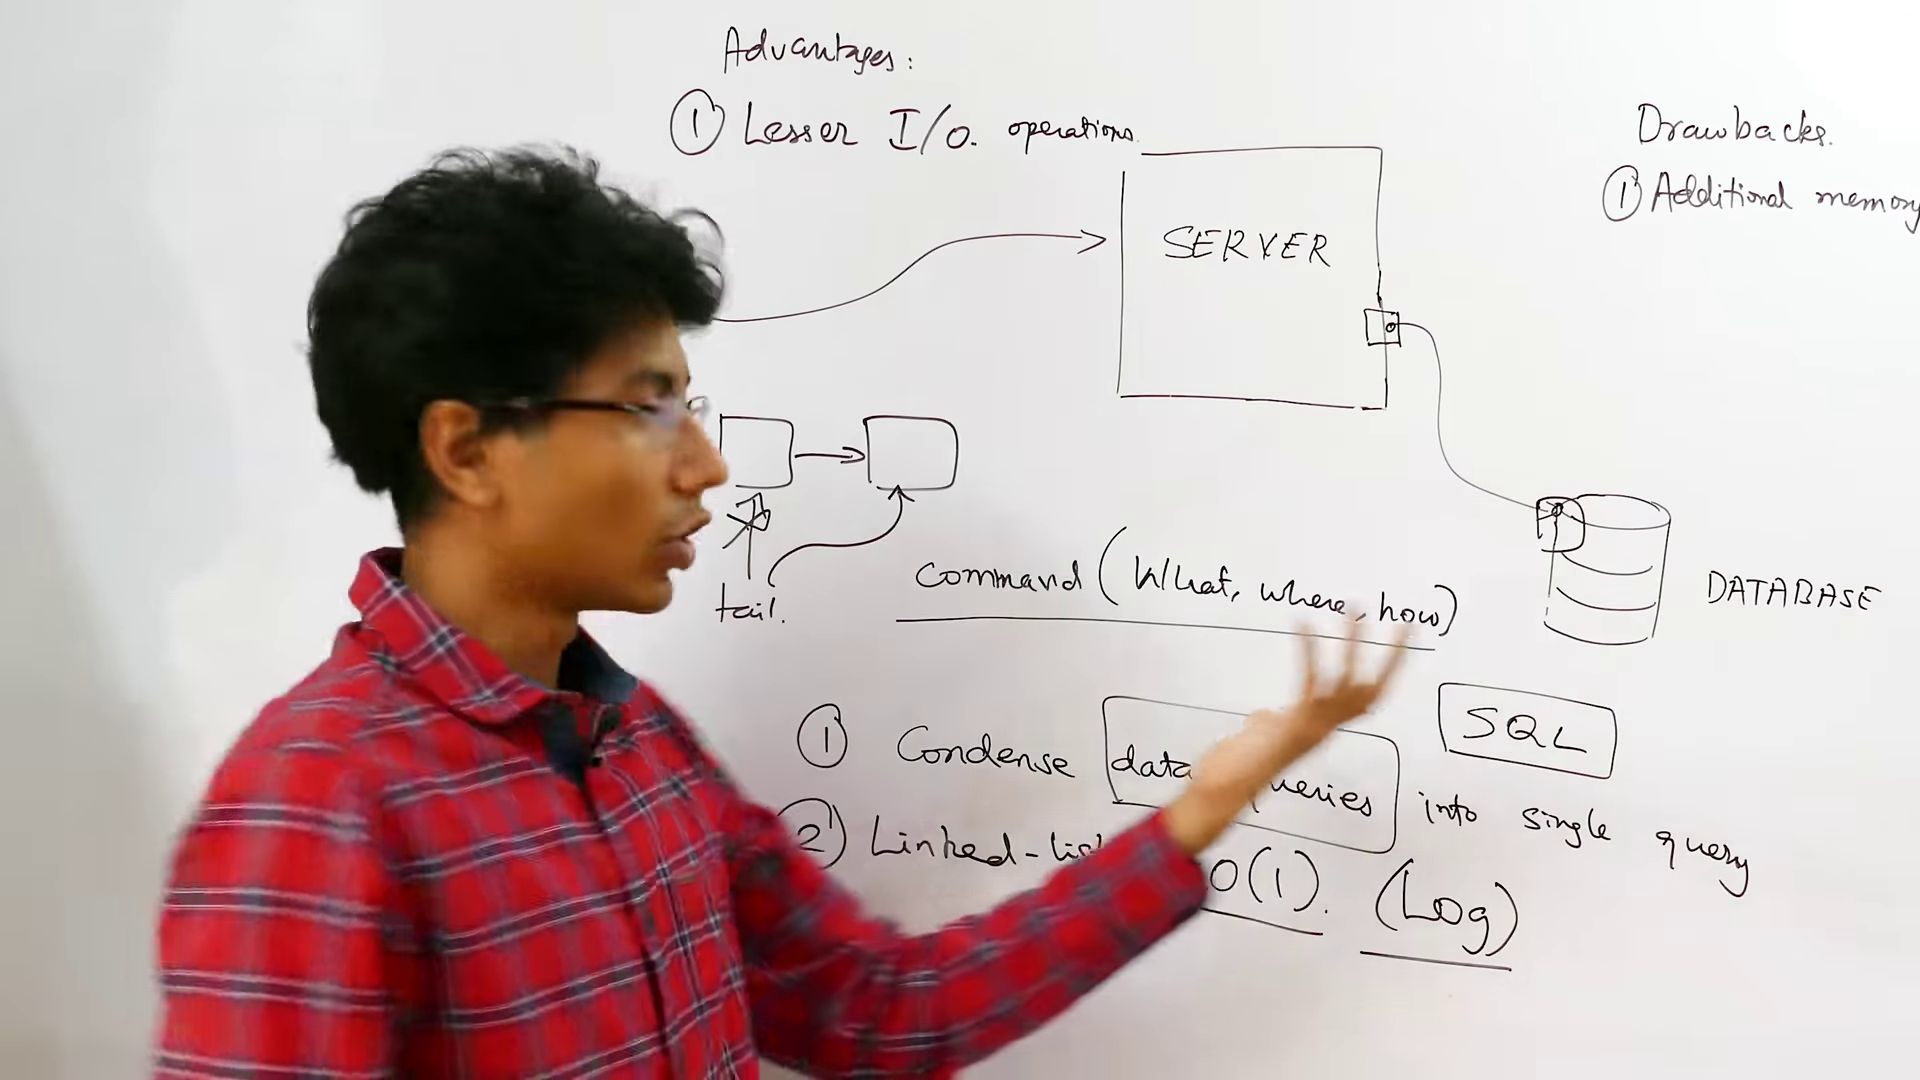 Advantages:
① Lesser I/O. operations.
SERVER
Drawbacks.
① Additional memory
tail.
Command (What, where, how)
DATABASE
SQL
① Condense data queries into single query
② Linked-list O(1). (Log)